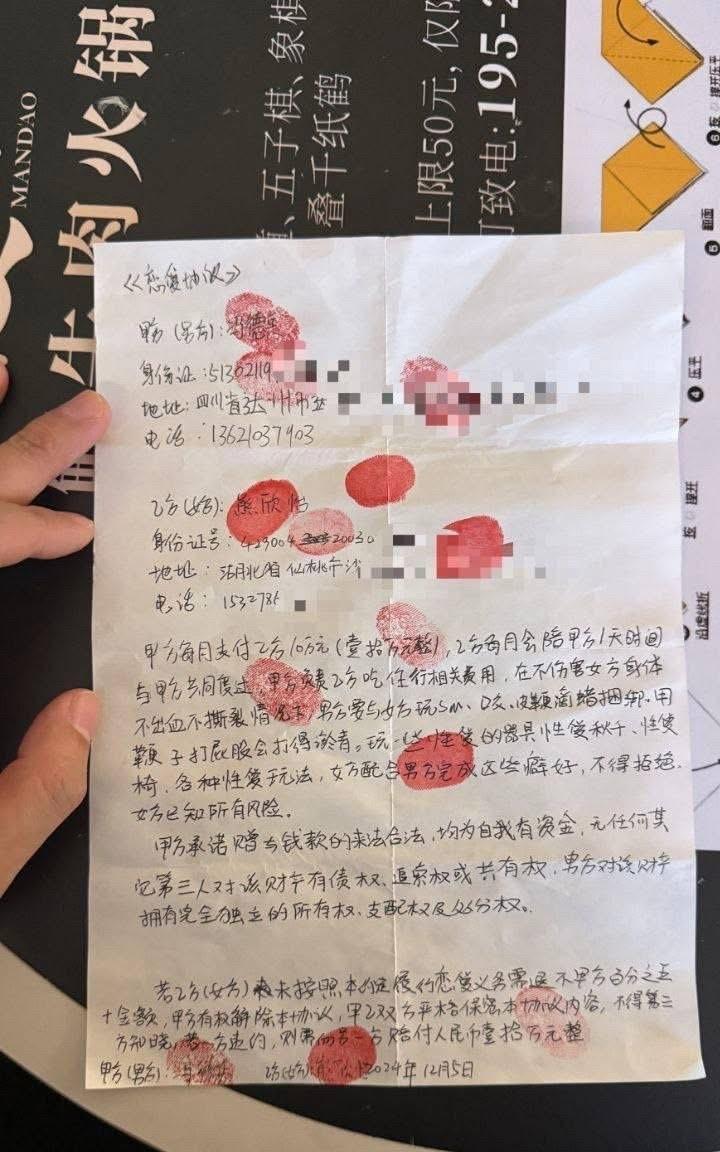 MANDAO
牛肉火锅
五子棋、象棋
叠千纸鹤
上限50元，仅限
可致电:
翻面
压平
撑开
沿虚线折
《恋爱协议》
甲方（男方）：
身份证：
地址：四川省达州市
电话：
乙方（女方）：
身份证号：
地址：湖北省仙桃市
电话：
甲方每月支付乙方10万元（壹拾万元整），乙方每月会陪甲方1天时间
与甲方共同度过，甲方负责乙方吃住行相关费用，在不伤害女方身体
不出血不撕裂情况下，男方要与女方玩sm、口交、皮鞭滴蜡捆绑，用
鞭子打屁股会打得淤青。玩一些性爱的器具性爱秋千、性爱
椅，各种性爱玩法，女方配合男方完成这些癖好，不得拒绝，
女方已知所有风险。
甲方承诺赠与钱款的来法合法，均为自我有资金，无任何其
它第三人对该财产有债权、追索权或共有权，男方对该财产
拥有完全独立的所有权、支配权及处分权。
若乙方（女方）未按照本 履行恋爱义务需退 甲方百分之五
十金额，甲方有权解除本协议，甲乙双方严格保密本协议内容，不得第三
方知晓，若一方违约，则需向另一方赔付人民币壹拾万元整
甲方（男方）：
乙方（女方）：
2024年12月5日